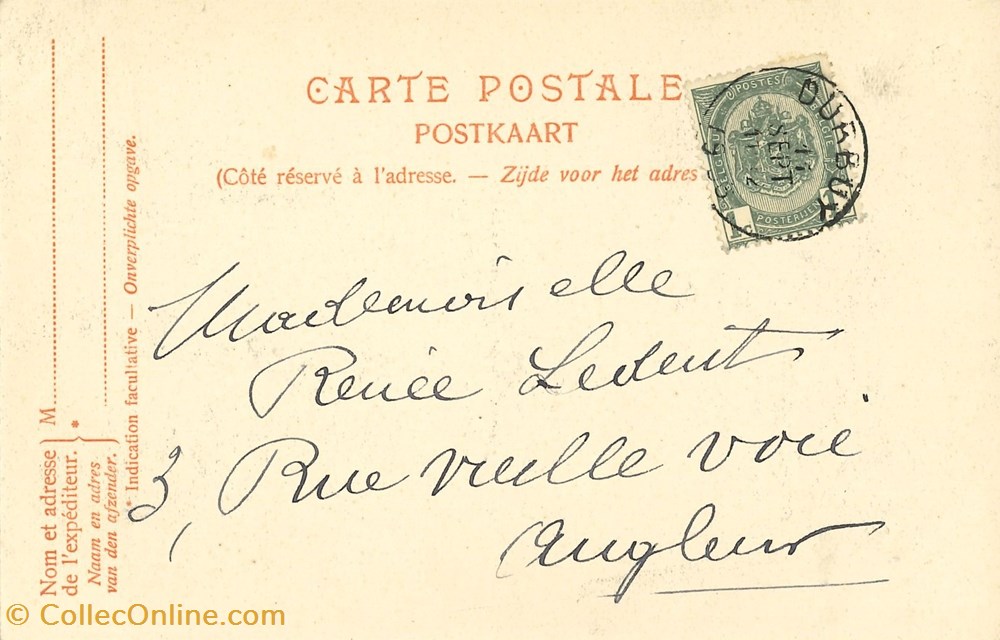 CARTE POSTALE
POSTKAART
(Côté réservé à l'adresse. — Zijde voor het adres
POSTES
POSTERIJEN
1
DURBUY
11
SEPT
Mademoiselle
Renée Ledent
3, Rue vieille voie
Angleur
Nom et adresse
de l'expéditeur.
Naam en adres
van den afzender.
M
*
* Indication facultative — Onverplichte opgave.
© CollecOnline.com